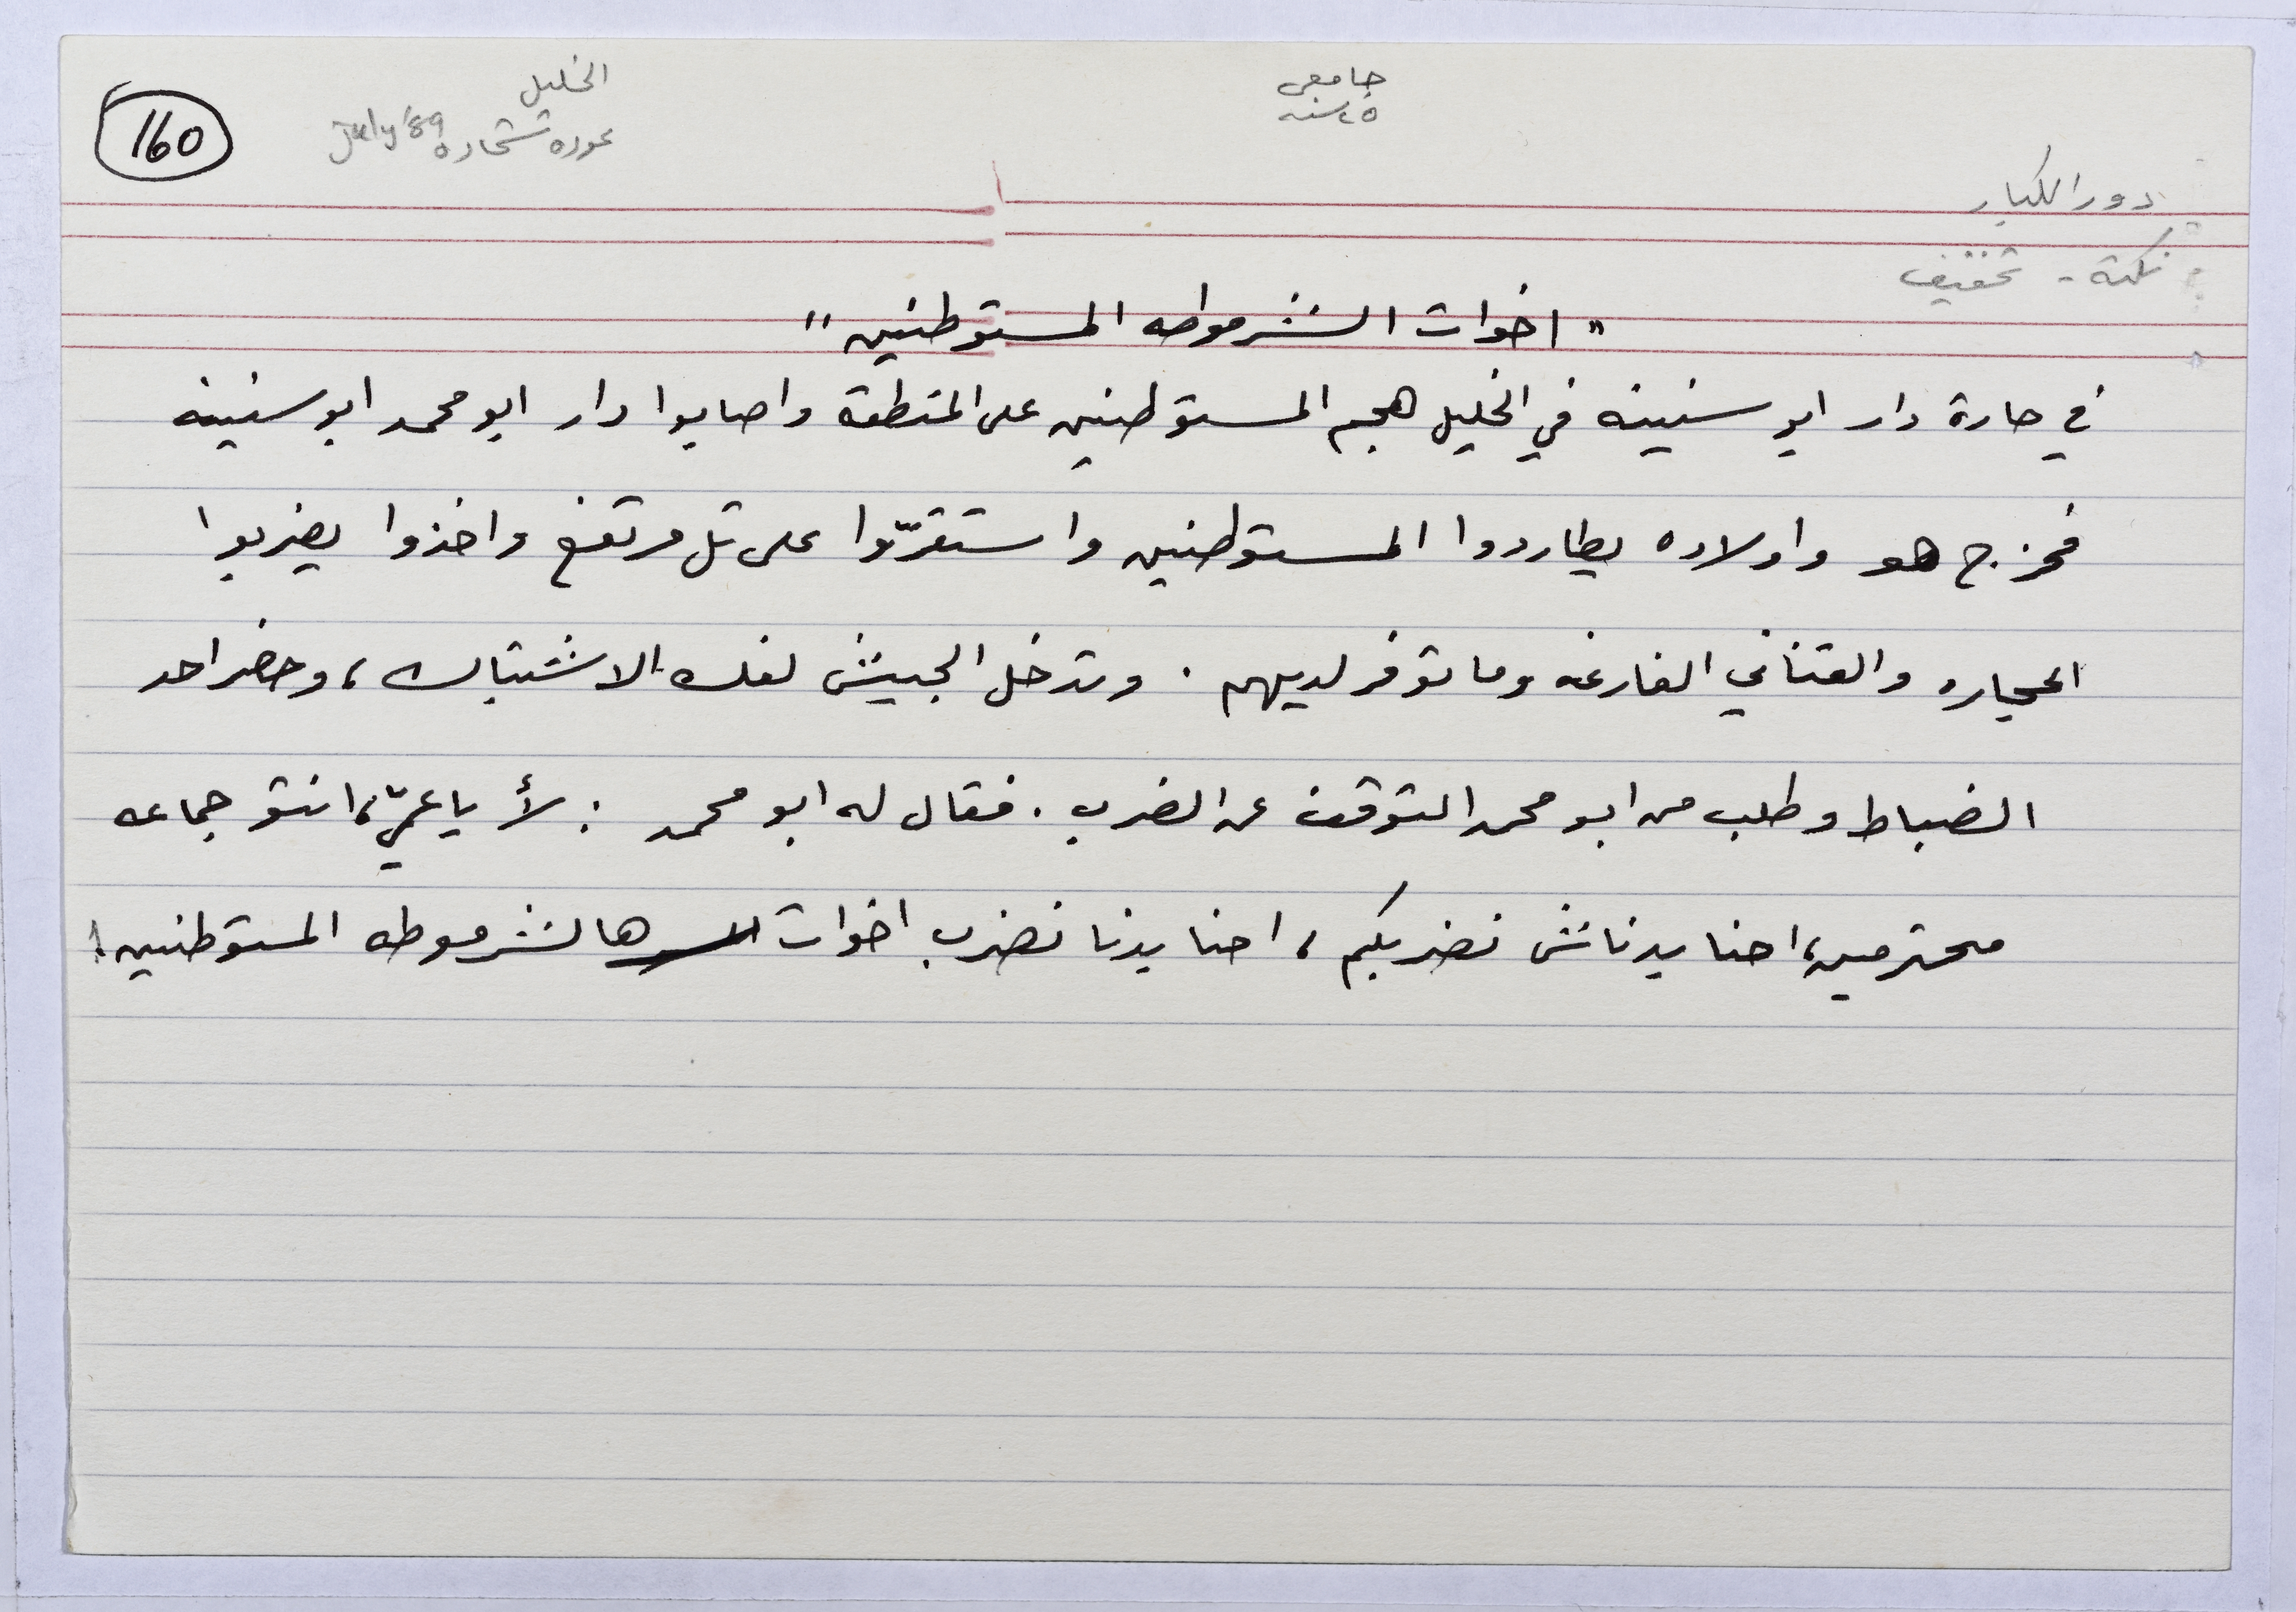 160
الخليل
عوده شحاده July '89
جامعي
٢٥ سنه
دور الكبار
نكتة - تخفيف
"اخوات الشرموطه المستوطنين"
في حارة دار ابو سنينه في الخليل هجم المستوطنين على المنطقة واصابوا دار ابو محمد ابو سنينه
فخرج هو واولاده يطاردوا المستوطنين واستقرّوا على تل مرتفع واخذوا يضربوا
الحجاره والقناني الفارغه وما توفر لديهم . وتدخل الجيش لفك الاشتباك ، وحضر احد
الضباط وطلب من ابو محمد التوقف عن الضرب . فقال له ابو محمد : لأ يا عميّ ، انتو جماعه
محترمين ، احنا بدناش نضربكم ، احنا بدنا نضرب اخوات هالشرموطه المستوطنين !